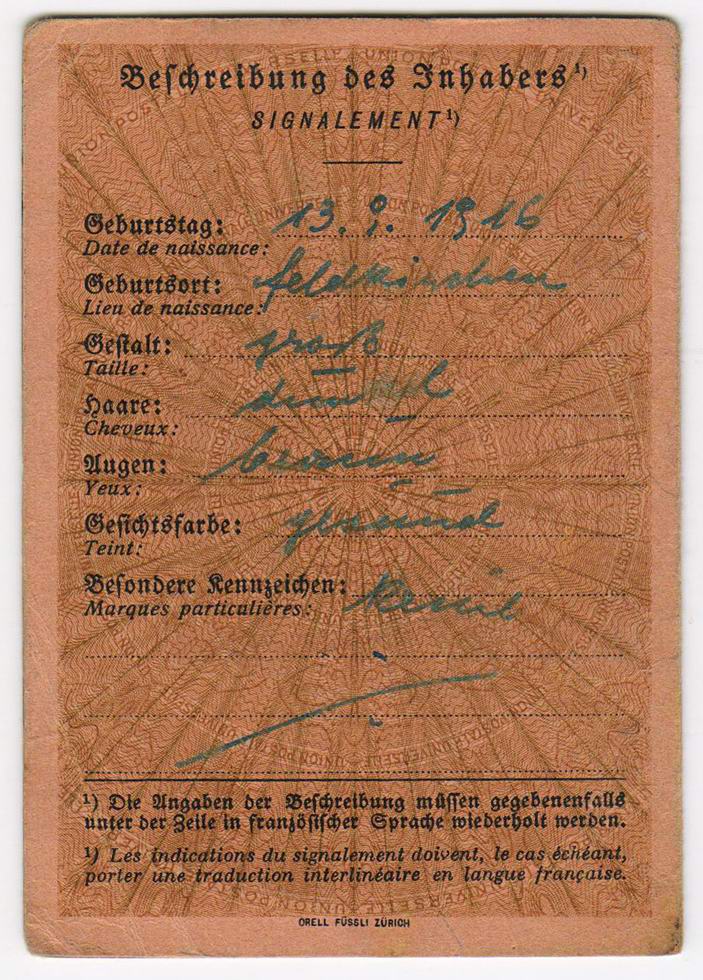 Beschreibung des Inhabers¹)
SIGNALEMENT¹)
Geburtstag: 13. 9. 1916
Date de naissance:
Geburtsort: Feldkirchen
Lieu de naissance:
Gestalt: groß
Taille:
Haare: dunkel
Cheveux:
Augen: braun
Yeux:
Gesichtsfarbe: gesund
Teint:
Besondere Kennzeichen:
Marques particulières:
¹) Die Angaben der Beschreibung müssen gegebenenfalls
unter der Zeile in französischer Sprache wiederholt werden.
¹) Les indications du signalement doivent, le cas échéant,
porter une traduction interlinéaire en langue française.
ORELL FÜSSLI ZÜRICH